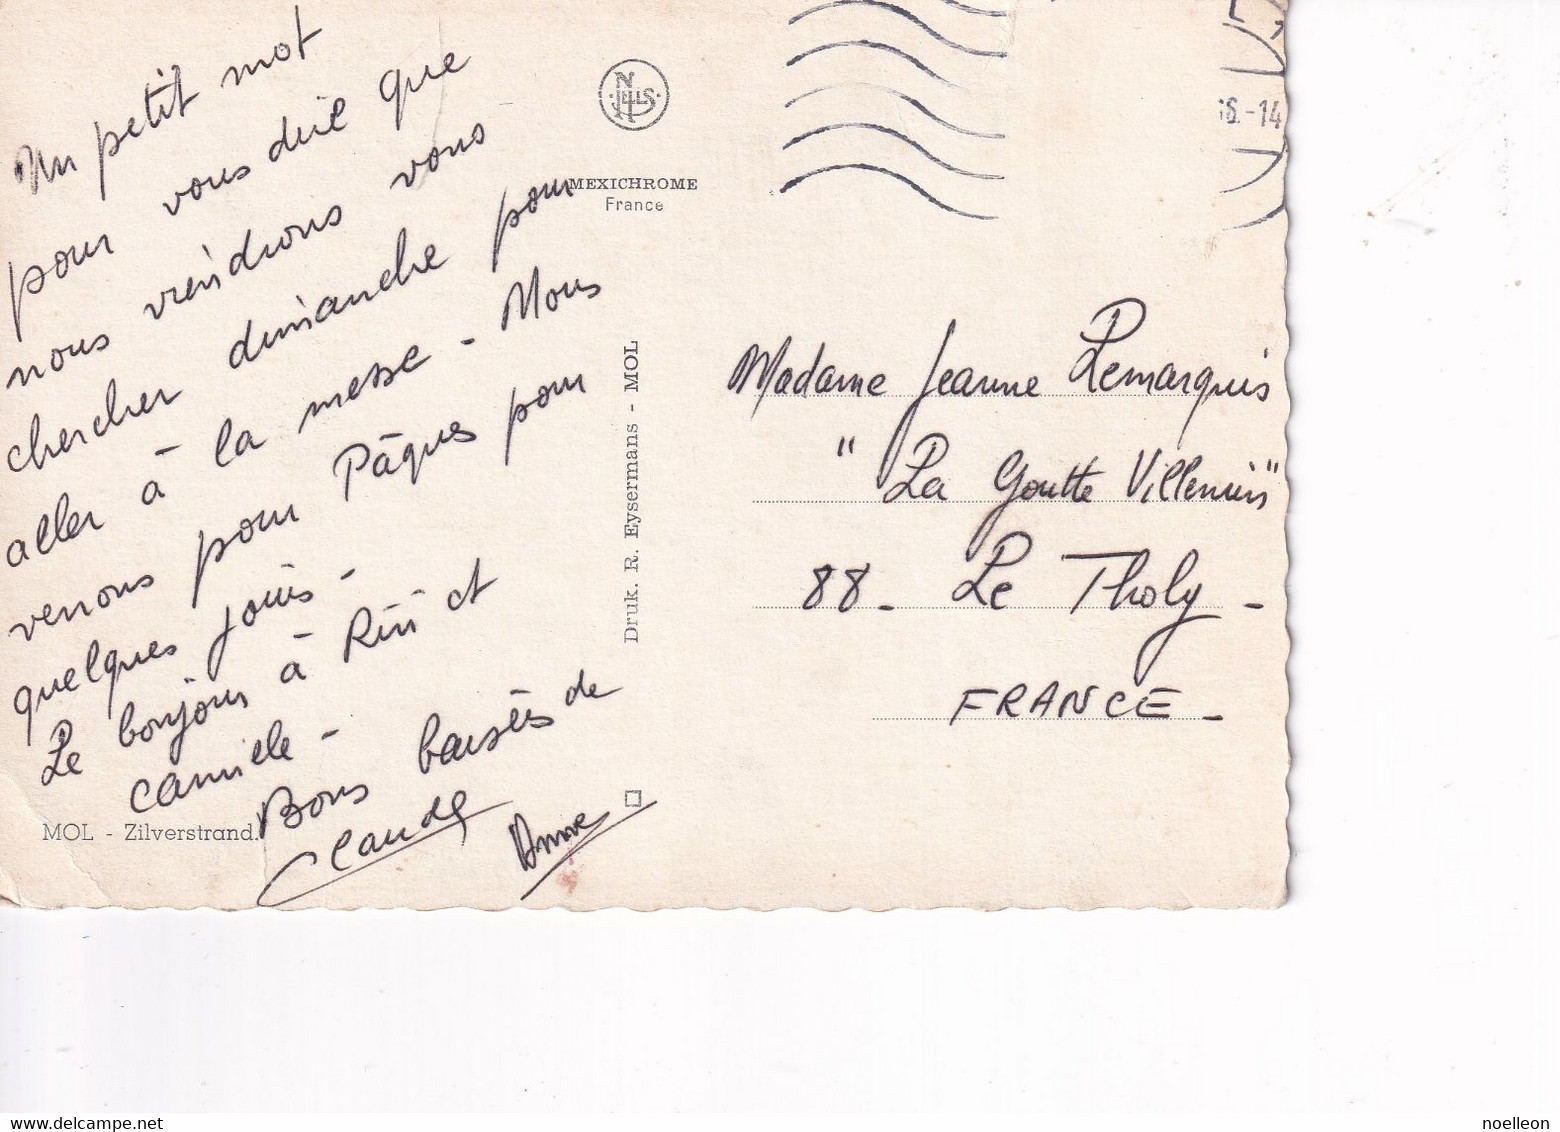 Un petit mot
pour vous dire que
nous viendrons vous
chercher dimanche pour
aller à la messe - Nous
venons pour Pâques pour
quelques jours -
Le bonjour à Riri et
Camille -
Bons baisers de
Claude Anne
MOL - Zilverstrand.
NELS
MEXICHROME
France
Druk. R. Eysermans - MOL
6.-14
Madame Jeanne Lemarquis
"La Goutte Villemin"
88 - Le Tholy -
FRANCE -
www.delcampe.net
noelleon